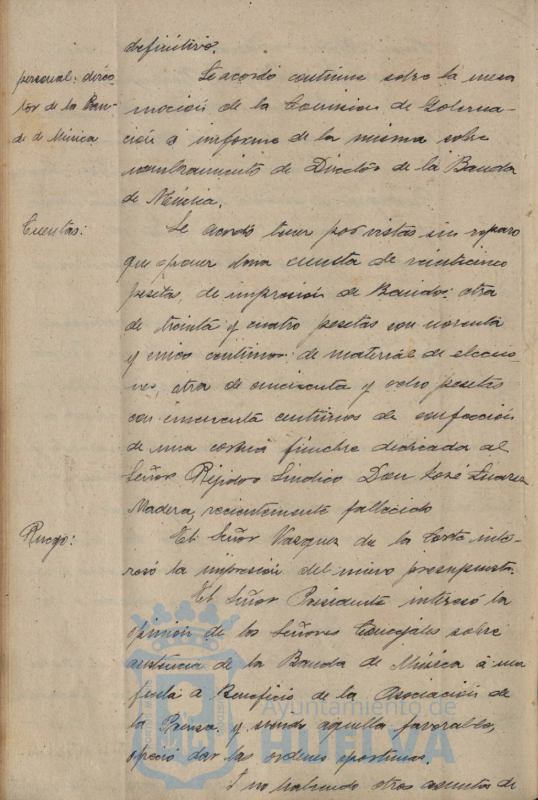 definitivo.
personal: direc-
tor de la Ban-
da de Música
Se acordó continue sobre la mesa
moción de la Comisión de Goberna-
ción é informe de la misma sobre
nombramiento de Director de la Banda
de Música.
Cuentas:
Se acordó tener por vistas sin reparo
que oponer una cuenta de veinticinco
pesetas, de impresión de Bandos: otra
de treinta y cuatro pesetas con noventa
y cinco centimos: de material de eleccio-
nes, otra de cincuenta y ocho pesetas
con cincuenta centimos de confección
de una corona fúnebre dedicada al
Señor Rejidor Sindico Don José Suarez
Madera, recientemente fallecido
Ruego:
El Señor Vazquez de la Corte inte-
resó la impresión del nuevo presupuesto.
El Señor Presidente interesó la
opinión de los Señores Concejales sobre
asistencia de la Banda de Música á una
fiesta a Beneficio de la Asociación de
la Prensa y siendo aquella favorable,
ofreció dar las ordenes oportunas.
Y no habiendo otros asuntos de
Ayuntamiento de
HUELVA